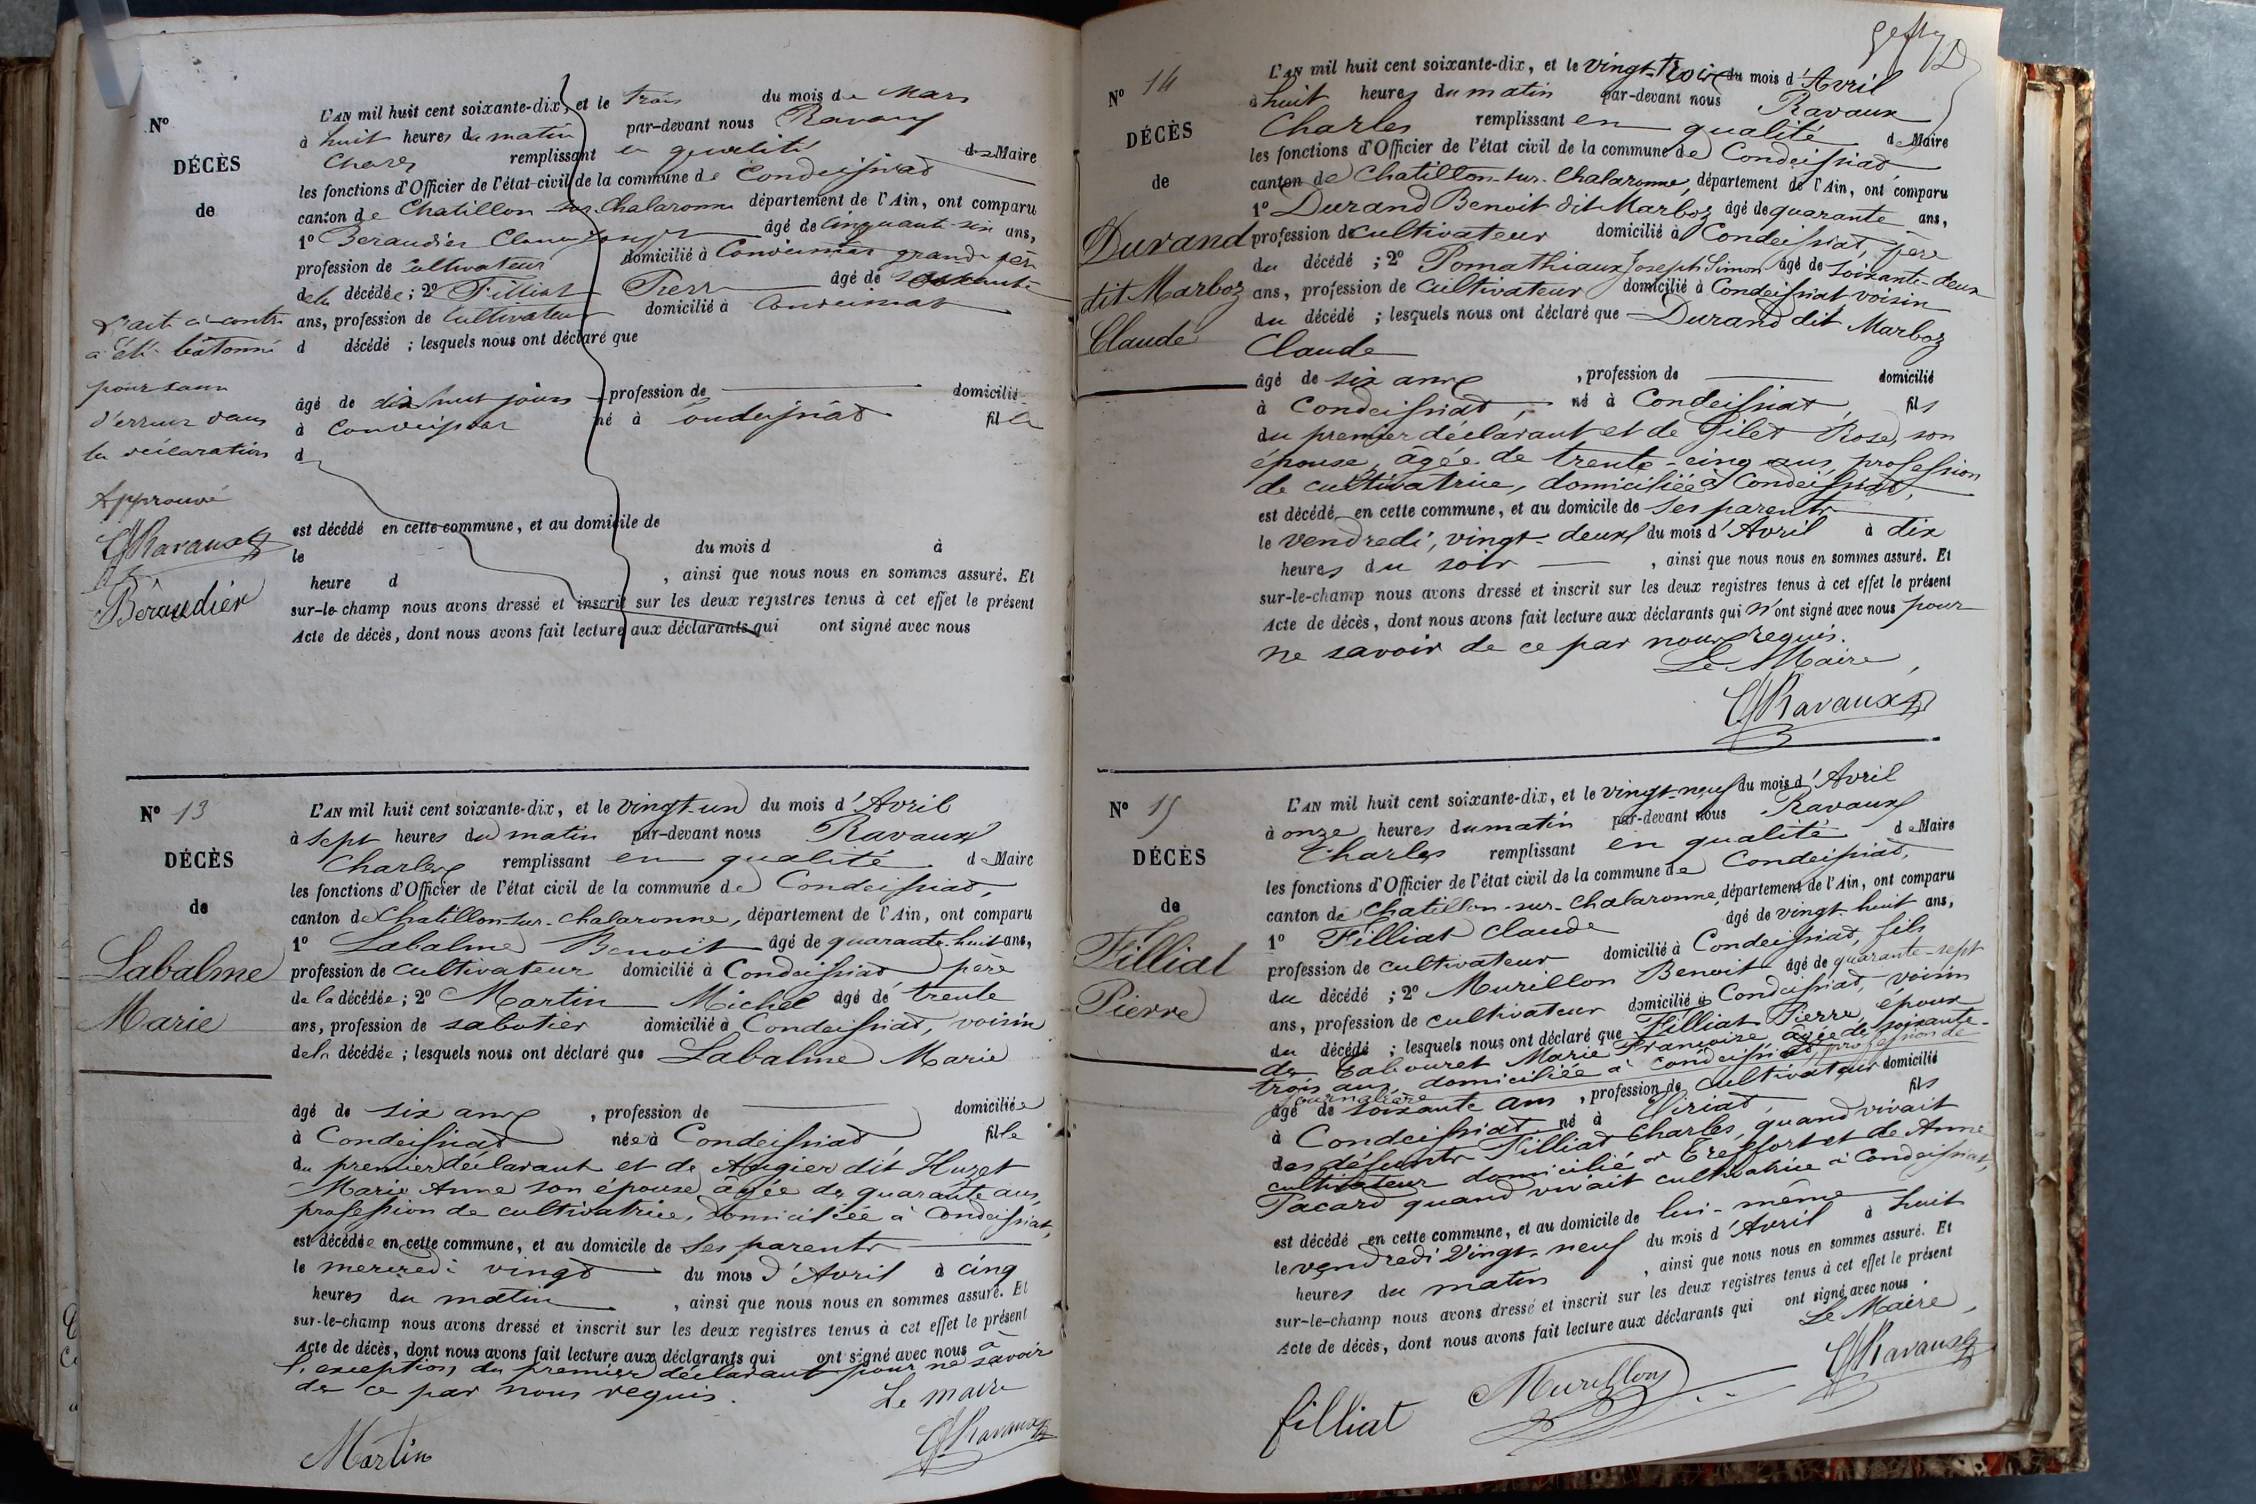 N°
DÉCÈS
de
L'acte ci-contre
a été bâtonné
pour cause
d'erreur dans
la déclaration
Approuvé
CRavaux
Béraudier
L'AN mil huit cent soixante-dix, et le trois du mois de Mars
à huit heures du matin par-devant nous Ravaux
Charles remplissant en qualité de Maire
les fonctions d'Officier de l'état-civil de la commune de Condeissiat
canton de Chatillon sur Chalaronne département de l'Ain, ont comparu
1° Beraudier âgé de cinquante six ans,
profession de cultivateur domicilié à Condeissiat grand père
de la décédée ; 2° Filliat Pierre âgé de soixante
ans, profession de cultivateur domicilié à Condeissiat
d décédé ; lesquels nous ont déclaré que
âgé de dix huit jours profession de domicilié
à Condeissiat né à Condeissiat fille
d
est décédé en cette commune, et au domicile de
le du mois d à
heure d , ainsi que nous nous en sommes assuré. Et
sur-le-champ nous avons dressé et inscrit sur les deux registres tenus à cet effet le présent
Acte de décès, dont nous avons fait lecture aux déclarants qui ont signé avec nous
N° 13
DÉCÈS
de
Labalme
Marie
L'AN mil huit cent soixante-dix, et le vingt-un du mois d'Avril
à sept heures du matin par-devant nous Ravaux
Charles remplissant en qualité de Maire
les fonctions d'Officier de l'état civil de la commune de Condeissiat,
canton de Chatillon-sur-Chalaronne, département de l'Ain, ont comparu
1° Labalme Benoit âgé de quarante-huit ans,
profession de cultivateur domicilié à Condeissiat père
de la décédée ; 2° Martin Michel âgé de trente
ans, profession de sabotier domicilié à Condeissiat, voisin
de la décédée ; lesquels nous ont déclaré que Labalme Marie
âgé de six ans , profession de domiciliée
à Condeissiat née à Condeissiat, fille
du premier déclarant et de Augier dit Huzet
Marie Anne son épouse âgée de quarante ans,
profession de cultivatrice, domiciliée à Condeissiat,
est décédée en cette commune, et au domicile de ses parents
le mercredi vingt du mois d'Avril à cinq
heures du matin , ainsi que nous nous en sommes assuré. Et
sur-le-champ nous avons dressé et inscrit sur les deux registres tenus à cet effet le présent
Acte de décès, dont nous avons fait lecture aux déclarants qui ont signé avec nous à
l'exception du premier déclarant pour ne savoir
de ce par nous requis.
Le maire
Martin
CRavaux
N° 14
DÉCÈS
de
Durand
dit Marboz
Claude
L'AN mil huit cent soixante-dix, et le vingt-trois du mois d'Avril
à huit heures du matin par-devant nous Ravaux
Charles remplissant en qualité de Maire
les fonctions d'Officier de l'état civil de la commune de Condeissiat
canton de Chatillon-sur-Chalaronne, département de l'Ain, ont comparu
1° Durand Benoit dit Marboz âgé de quarante ans,
profession de cultivateur domicilié à Condeissiat, père
du décédé ; 2° Pomathiaux Joseph Simon âgé de soixante-deux
ans, profession de cultivateur domicilié à Condeissiat voisin
du décédé ; lesquels nous ont déclaré que Durand dit Marboz
Claude
âgé de six ans , profession de domicilié
à Condeissiat, né à Condeissiat, fils
du premier déclarant et de Gilet Rose, son
épouse, âgée de trente-cinq ans, profession
de cultivatrice, domiciliée à Condeissiat,
est décédé en cette commune, et au domicile de ses parents
le vendredi, vingt-deux du mois d'Avril à dix
heures du soir , ainsi que nous nous en sommes assuré. Et
sur-le-champ nous avons dressé et inscrit sur les deux registres tenus à cet effet le présent
Acte de décès, dont nous avons fait lecture aux déclarants qui n'ont signé avec nous pour
ne savoir de ce par nous requis.
Le Maire,
CRavaux
N° 15
DÉCÈS
de
Filliat
Pierre
L'AN mil huit cent soixante-dix, et le vingt-neuf du mois d'Avril
à onze heures du matin par-devant nous Ravaux
Charles remplissant en qualité de Maire
les fonctions d'Officier de l'état civil de la commune de Condeissiat,
canton de Chatillon-sur-Chalaronne, département de l'Ain, ont comparu
1° Filliat Claude âgé de vingt-huit ans,
profession de cultivateur domicilié à Condeissiat, fils
du décédé ; 2° Murillon Benoit âgé de quarante-sept
ans, profession de cultivateur domicilié à Condeissiat, voisin
du décédé ; lesquels nous ont déclaré que Filliat Pierre, époux
de Tabouret Marie Françoise âgée de soixante-
trois ans, domiciliée à Condeissiat, profession de
journalière
âgé de soixante ans , profession de cultivateur domicilié
à Condeissiat né à Viriat, fils
des défunts Filliat Charles, quand vivait
cultivateur domicilié à Treffort et de Anne
Pacard quand vivait cultivatrice à Condeissiat,
est décédé en cette commune, et au domicile de lui-même
le vendredi vingt-neuf du mois d'Avril à huit
heures du matin , ainsi que nous nous en sommes assuré. Et
sur-le-champ nous avons dressé et inscrit sur les deux registres tenus à cet effet le présent
Acte de décès, dont nous avons fait lecture aux déclarants qui ont signé avec nous.
Le Maire,
filliat
Murillon
CRavaux